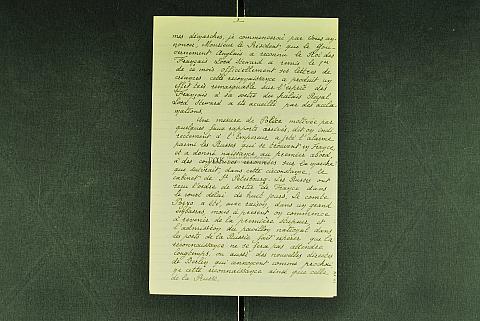 mes démarches, je commencerai par vous an-
noncer, Monsieur le Président que le Gou-
vernement Anglais a reconnu le Roi des
Français. Lord Steward a remis le 1er
de ce mois officiellement ses lettres de
créances cette reconnaissance a produit un
effet très remarquable sur l'esprit des
Français à sa sortie du Palais Royal
Lord Steward a été accueilli par des accla-
mations.
Une mesure de Police motivée par
quelques faux rapports arrivés, dit-on indi-
rectement à l'Empereur a jeté l'alarme
parmi les Russes qui se trouvent en France
et a donné naissance, au premier abord,
à des conjectures erronées sur la marche
que suivrait, dans cette circonstance, le
cabinet de St Petersbourg. Les Russes ont
reçu l'ordre de sortir de France dans
le court délai de huit jours. Le comte
Pozzo a été, avec raison, dans un grand
embarras, mais à présent on commence
à revenir de la première stupeur, et
l'admission du pavillon national dans
les ports de la Russie fait espérer que la
reconnaissance ne se fera pas attendre
longtemps, on aussi des nouvelles directes
de Berlin qui annoncent comme prochai
ne cette reconnaissance ainsi que celle
de la Prusse.